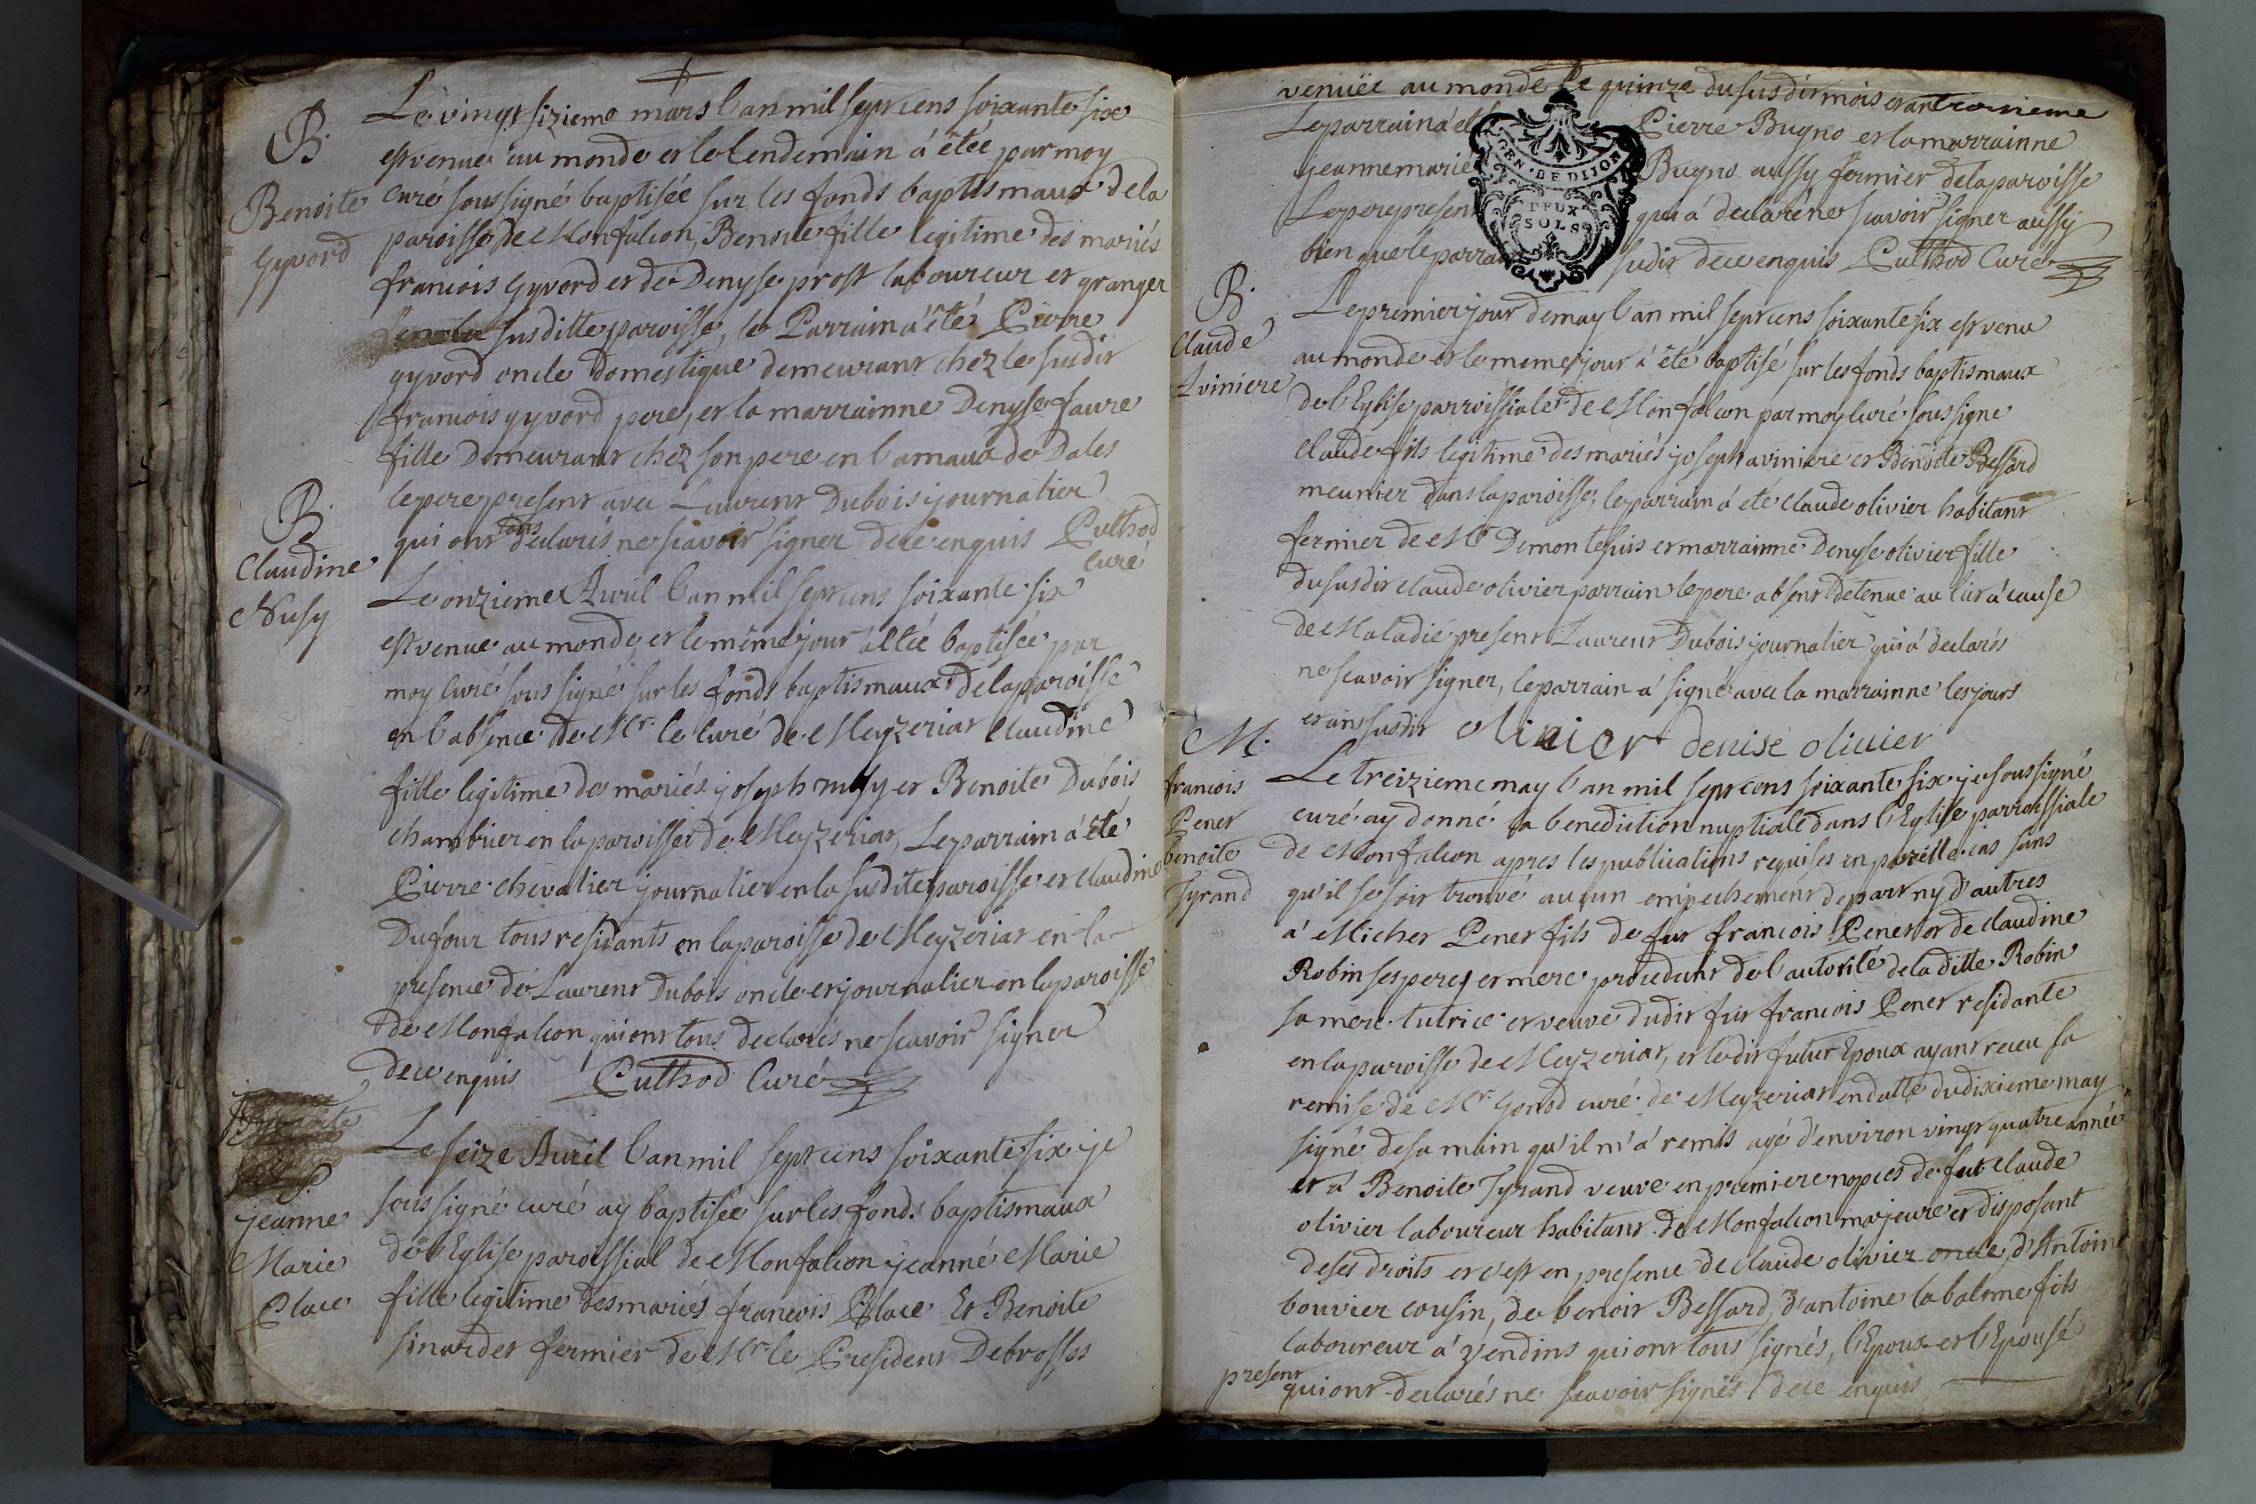 B.
Benoite
Gyvord
Le vingt sixieme mars l'an mil sept cens soixante six
est venue au monde et le lendemain á étée par moy
curé soussigné baptisée sur les fonds baptismaux de la
paroisse de Monfalcon, Benoite fille legitime des mariés
francois gyvord et de Denyse prost laboureur et granger
susditte paroisse, le Parrain a été Pierre
gyvord oncle domestique demeurant chez le susdit
francois gyvord pere, et la marrainne Denyse faure
fille Demeurant chez son pere en l'amaux de Dales
le pere present avec Laurent Dubois journalier
qui ont tous declarés ne scavoir signer de ce enquis Cuthod
Curé
B.
Claudine
Nusy
Le onzieme Avril l'an mil sept cens soixante six
est venue au monde et le même jour a étée baptisée par
moy Curé sous signé sur les fonds baptismaux de la paroisse
en l'absence de Mr. le Curé de Meyzeriat Claudine
fille legitime des mariés joseph nusy et Benoite Dubois
chambrier en la paroisse de Meyzeriat, Le parrain á été
Pierre chevalier journalier en la susdite paroisse et claudine
Dufour tous residants en la paroisse de Meyzeriat en la
presence de Laurent Dubois oncle et journalier en la paroisse
de Monfalcon qui ont tous declarés ne scavoir signer
de ce enquis Cuthod Curé
jeanne
Marie
Place
Le seize Avril l'an mil sept cens soixante six je
sous signé curé ay baptisée sur les fonds baptismaux
de l'Eglise paroissial de Monfalcon jeanne Marie
fille legitime des mariés francois Place Et Benoite
sinardet fermier de Mr. le President Debrosses
venuëe au monde Le quinze du susdit mois et an troisieme
Le parrain á été Pierre Bugno et la marrainne
jeanne marie Bugno aussy fermier de la paroisse
Le pere present qui á declaré ne scavoir signer aussy
bien que le parrain sudit de ce enquis Cuthod Curé
GEN. DE DIJON
DEUX
SOLS
B.
Claude
Aviniere
Le premier jour de may l'an mil sept cens soixante six est venu
au monde et le meme jour á été baptisé sur les fonds baptismaux
de l'Eglise parroissiale de Monfalcon par moy Curé sous signe
Claude fils legitime des mariés joseph aviniere et Benoite Bessard
meunier dans la paroisse, le parrain á eté Claude olivier habitant
fermier de Mr Demontepuis et marrainne Denyse olivier fille
du susdit Claude olivier parrain le pere absent detenue au lit á cause
de Maladie present Laurent Dubois journalier qui á declarés
ne scavoir signer, le parrain á signé avec la marrainne les jours
et an susdit olivier denise olivier
M.
francois
Pener
benoite
Tyrand
Le treizieme may l'an mil sept cens soixante six je soussigné
curé ay donné la benediction nuptiale dans l'Eglise parroissiale
de Monfalcon apres les publications requises en pareille cas sans
qu'il se soit trouvé aucun empechement de part ny d'autres
á Micher Pener fils de fut francois Pener et de claudine
Robin ses peres et mere procedant de l'autorité de la ditte Robin
sa mere tutrice et veuve dudit fut francois Pener residante
en la paroisse de Meyzeriat, et ledit futur Epoux ayant receu sa
remise de Mr. Gonod curé de Meyzeriat en datte du dixieme may
signé de sa main qu'il m'a remis agé d'environ vingt quatre année
et á Benoite Tyrand veuve en premiere nopces de fut Claude
olivier laboureur habitant de Monfalcon majeure et disposant
de ses droits et c'est en presence de Claude olivier oncle, d'Antoine
bouvier cousin, de benoit Bessard, d'antoine labalme fils
laboureur á vendins qui ont tous signés, l'Epoux et l'Epouse
present qui ont declarés ne scavoir signés de ce enquis